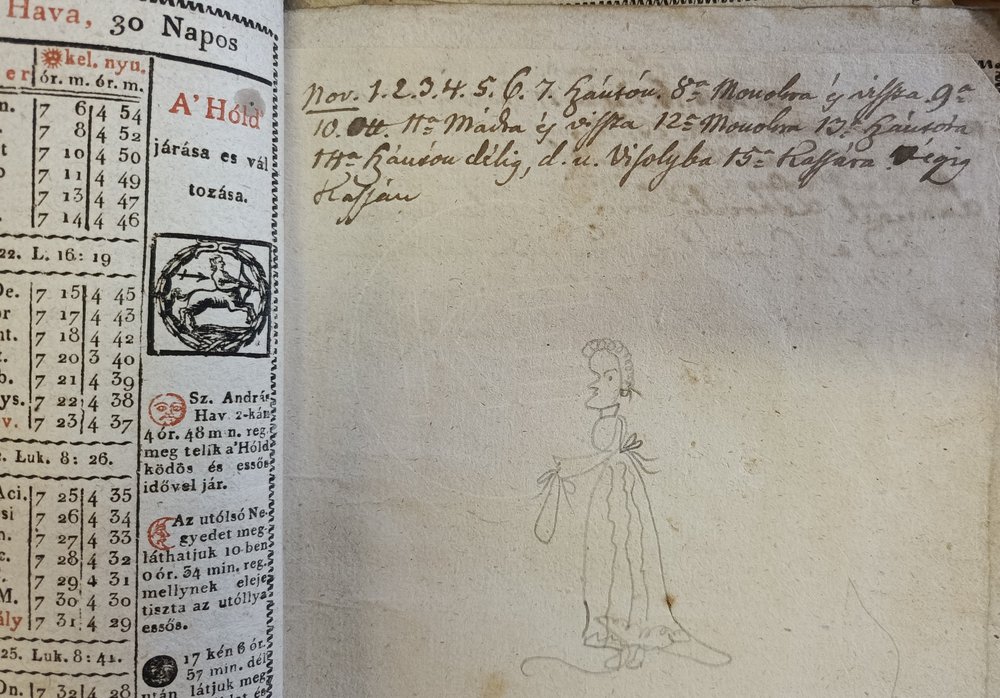 Hava, 30 Napos
kel. nyu.
er ór. m. ór. m.
7 6 4 54
7 8 4 52
7 10 4 50
7 11 4 49
7 13 4 47
7 14 4 46
22. L. 16: 19
De. 7 15 4 45
or 7 17 4 43
nt. 7 18 4 42
7 20 3 40
b. 7 21 4 39
ys. 7 22 4 38
v. 7 23 4 37
e. Luk. 8: 26.
Aci. 7 25 4 35
si 7 26 4 34
n. 7 27 4 33
7 28 4 32
7 29 4 31
M. 7 30 4 30
ály 7 31 4 29
25. Luk. 8: 41.
On. 7 32 4 28
A' Hóld
járása es vál
tozása.
Sz. András
Hav 2-kán
4 ór. 48 m n. reg.
meg telik a' Hóld
ködös és essős
idővel jár.
Az utólsó Ne-
gyedet meg-
láthatjuk 10 ben
0 ór. 34 min. reg.
mellynek eleje
tiszta az utóllya
essős.
17 kén 6 ór.
57 min. dél
után látjuk meg
Nov. 1. 2. 3. 4. 5. 6. 7. 8a Monokra és vissza. 9a
10. 11a Mádra és vissza 12a Monokra 13a
14a délig, d. u. Visolyba 15a Kassára végig
Kassán